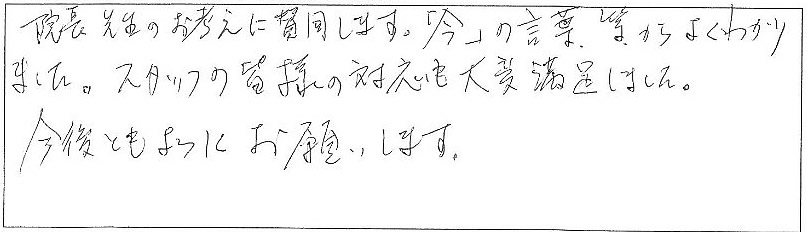 院長先生のお考えに賛同します。「今」の言葉、等からよくわかり
ました。スタッフの皆様の対応も大変満足しました。
今後ともよろしくお願いします。